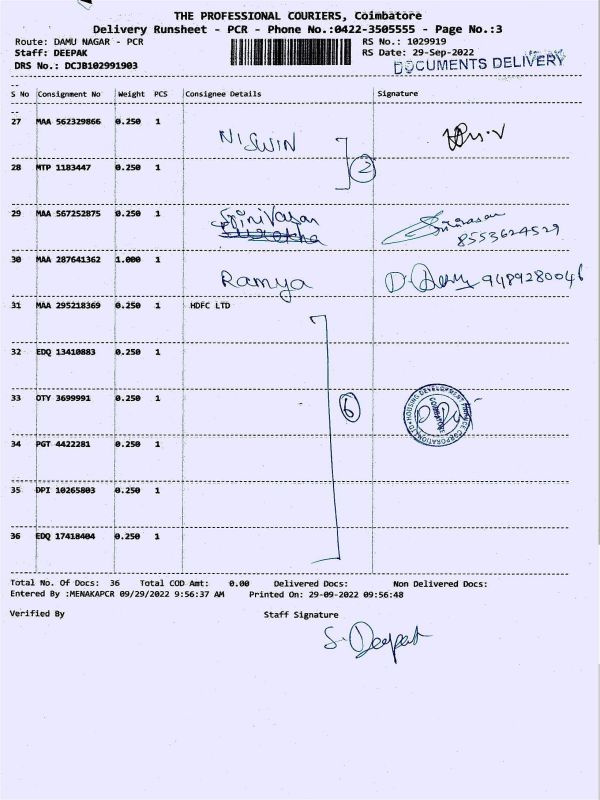 THE PROFESSIONAL COURIERS, Coimbatore
Delivery Runsheet - PCR - Phone No.:0422-3505555 - Page No.:3
Route: DAMU NAGAR - PCR RS No.: 1029919
Staff: DEEPAK RS Date: 29-Sep-2022
DRS No.: DCJB102991903 DOCUMENTS DELIVERY
--
S No Consignment No Weight PCS Consignee Details Signature
--
27 MAA 562329866 0.250 1 NISWIN
28 MTP 1183447 0.250 1 2
29 MAA 567252875 0.250 1 Srinivasan Srinivasan 8553624529
30 MAA 287641362 1.000 1 Ramya 9489280046
31 MAA 295218369 0.250 1 HDFC LTD
32 EDQ 13410883 0.250 1
33 OTY 3699991 0.250 1 6 HOUSING DEVELOPMENT FINANCE CORPORATION LTD COIMBATORE
34 PGT 4422281 0.250 1
35 DPI 10265803 0.250 1
36 EDQ 17418404 0.250 1
Total No. Of Docs: 36 Total COD Amt: 0.00 Delivered Docs: Non Delivered Docs:
Entered By :MENAKAPCR 09/29/2022 9:56:37 AM Printed On: 29-09-2022 09:56:48
Verified By Staff Signature
S. Deepak